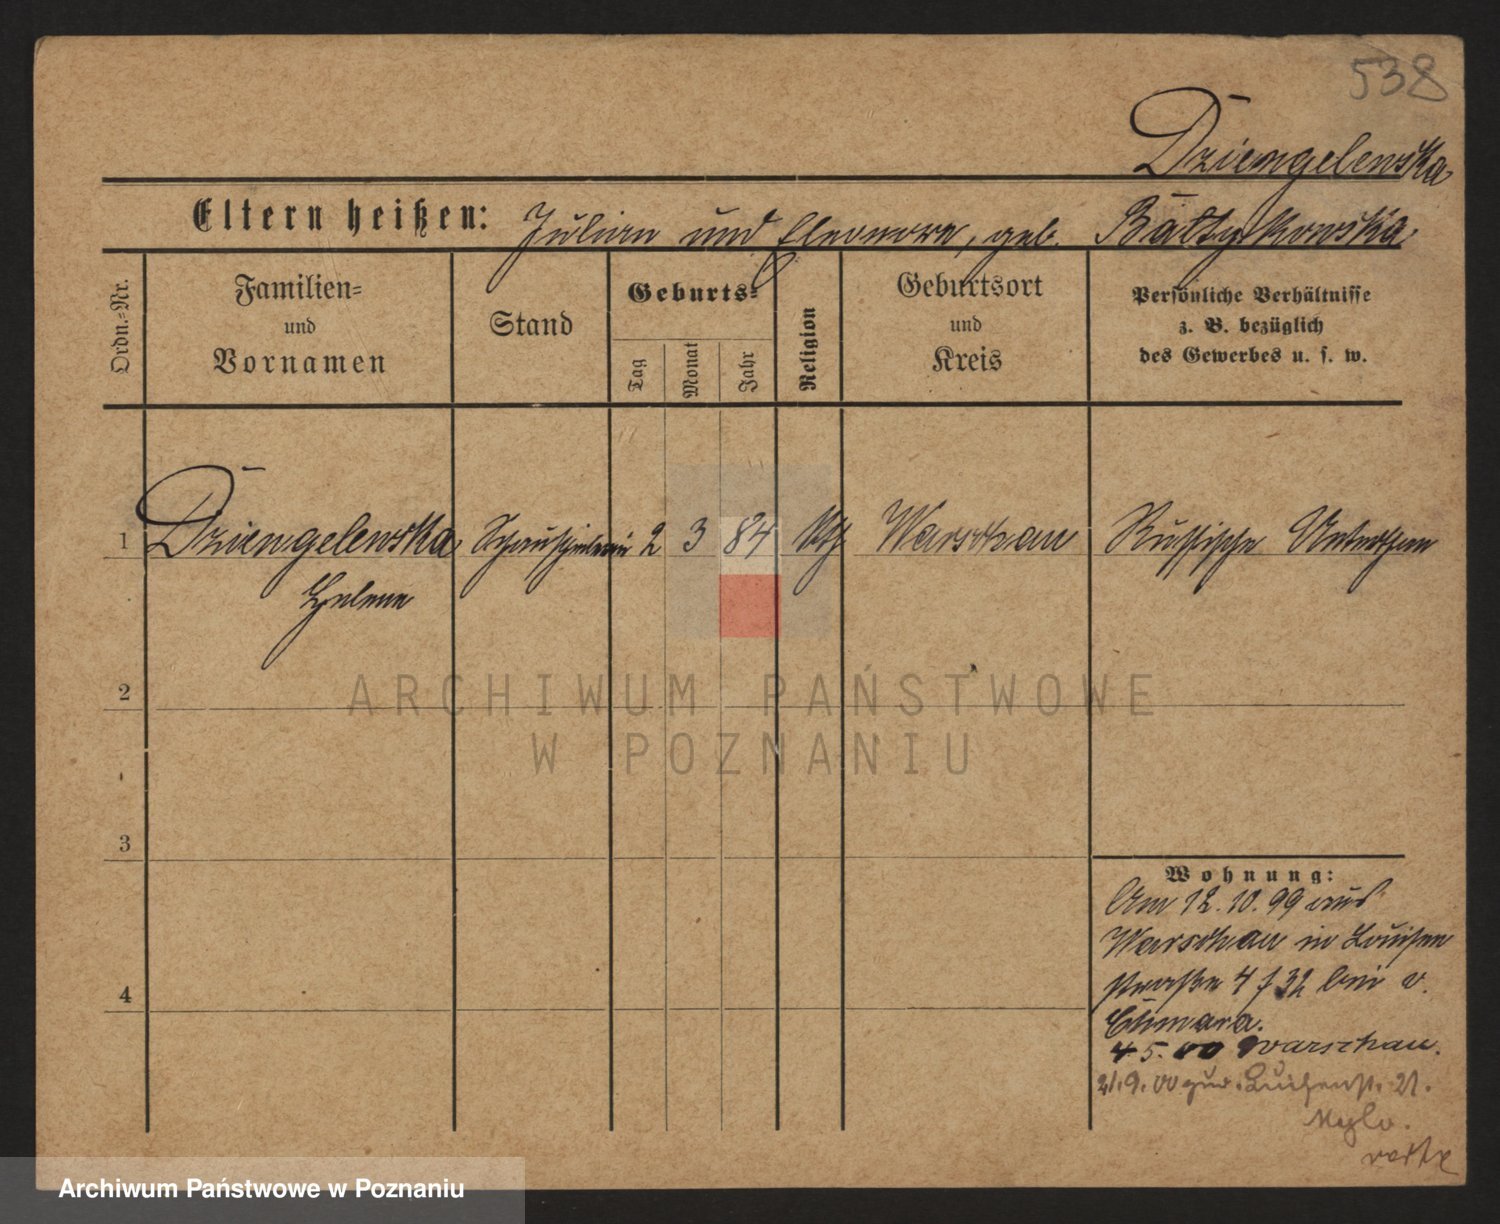 538
Dziengelewska
Eltern heißen: Julian und Eleonore, geb. Bałtykowska
Ordn.-Nr.
Familien-
und
Vornamen
Stand
Geburts-
Tag
Monat
Jahr
Religion
Geburtsort
und
Kreis
Persönliche Verhältnisse
z. B. bezüglich
des Gewerbes u. s. w.
1 Dziengelewska Schauspielerin 2 3 84 kth Warschau Russische Unterthan
Helene
2
3
4
Wohnung:
Am 12.10.99 aus
Warschau in Louisen
straße 4 f 32 bei v.
4.5.00 Warschau.
21.9.00 zur. Luisenst. 21.
ARCHIWUM PAŃSTWOWE
W POZNANIU
Archiwum Państwowe w Poznaniu